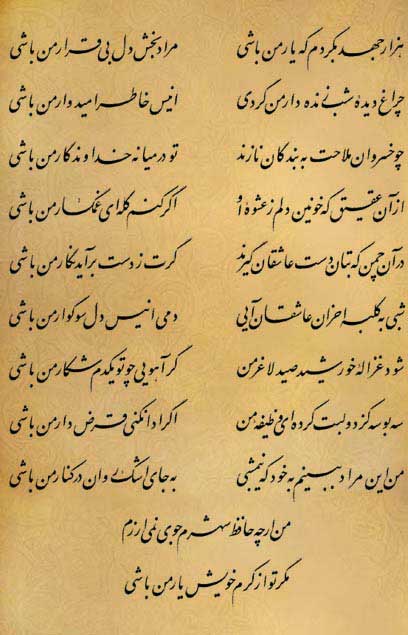 هزار جهد بکردم که یار من باشی مراد بخش دل بی قرار من باشی
چراغ دیدهٔ شب زنده دار من گردی انیس خاطر امیدوار من باشی
چو خسروان ملاحت به بندگان نازند تو در میانه خداوندگار من باشی
از آن عقیق که خونین دلم ز عشوهٔ او اگر کنم گله‌ای غمگسار من باشی
در آن چمن که بتان دست عاشقان گیرند گرت ز دست برآید نگار من باشی
شبی به کلبهٔ احزان عاشقان آیی دمی انیس دل سوکوار من باشی
شود غزالهٔ خورشید صید لاغر من گر آهویی چو تو یکدم شکار من باشی
سه بوسه کز دو لبت کرده‌ای وظیفهٔ من اگر ادا نکنی قرض دار من باشی
من این مراد ببینم به خود که نیمشبی به جای اشک روان در کنار من باشی
من ار چه حافظ شهرم جوی نمی ارزم
مگر تو از کرم خویش یار من باشی